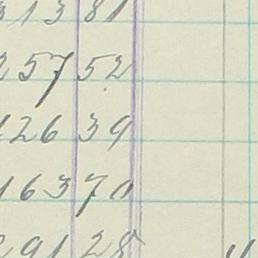 313 81
257 52
126 39
163 70
291 28